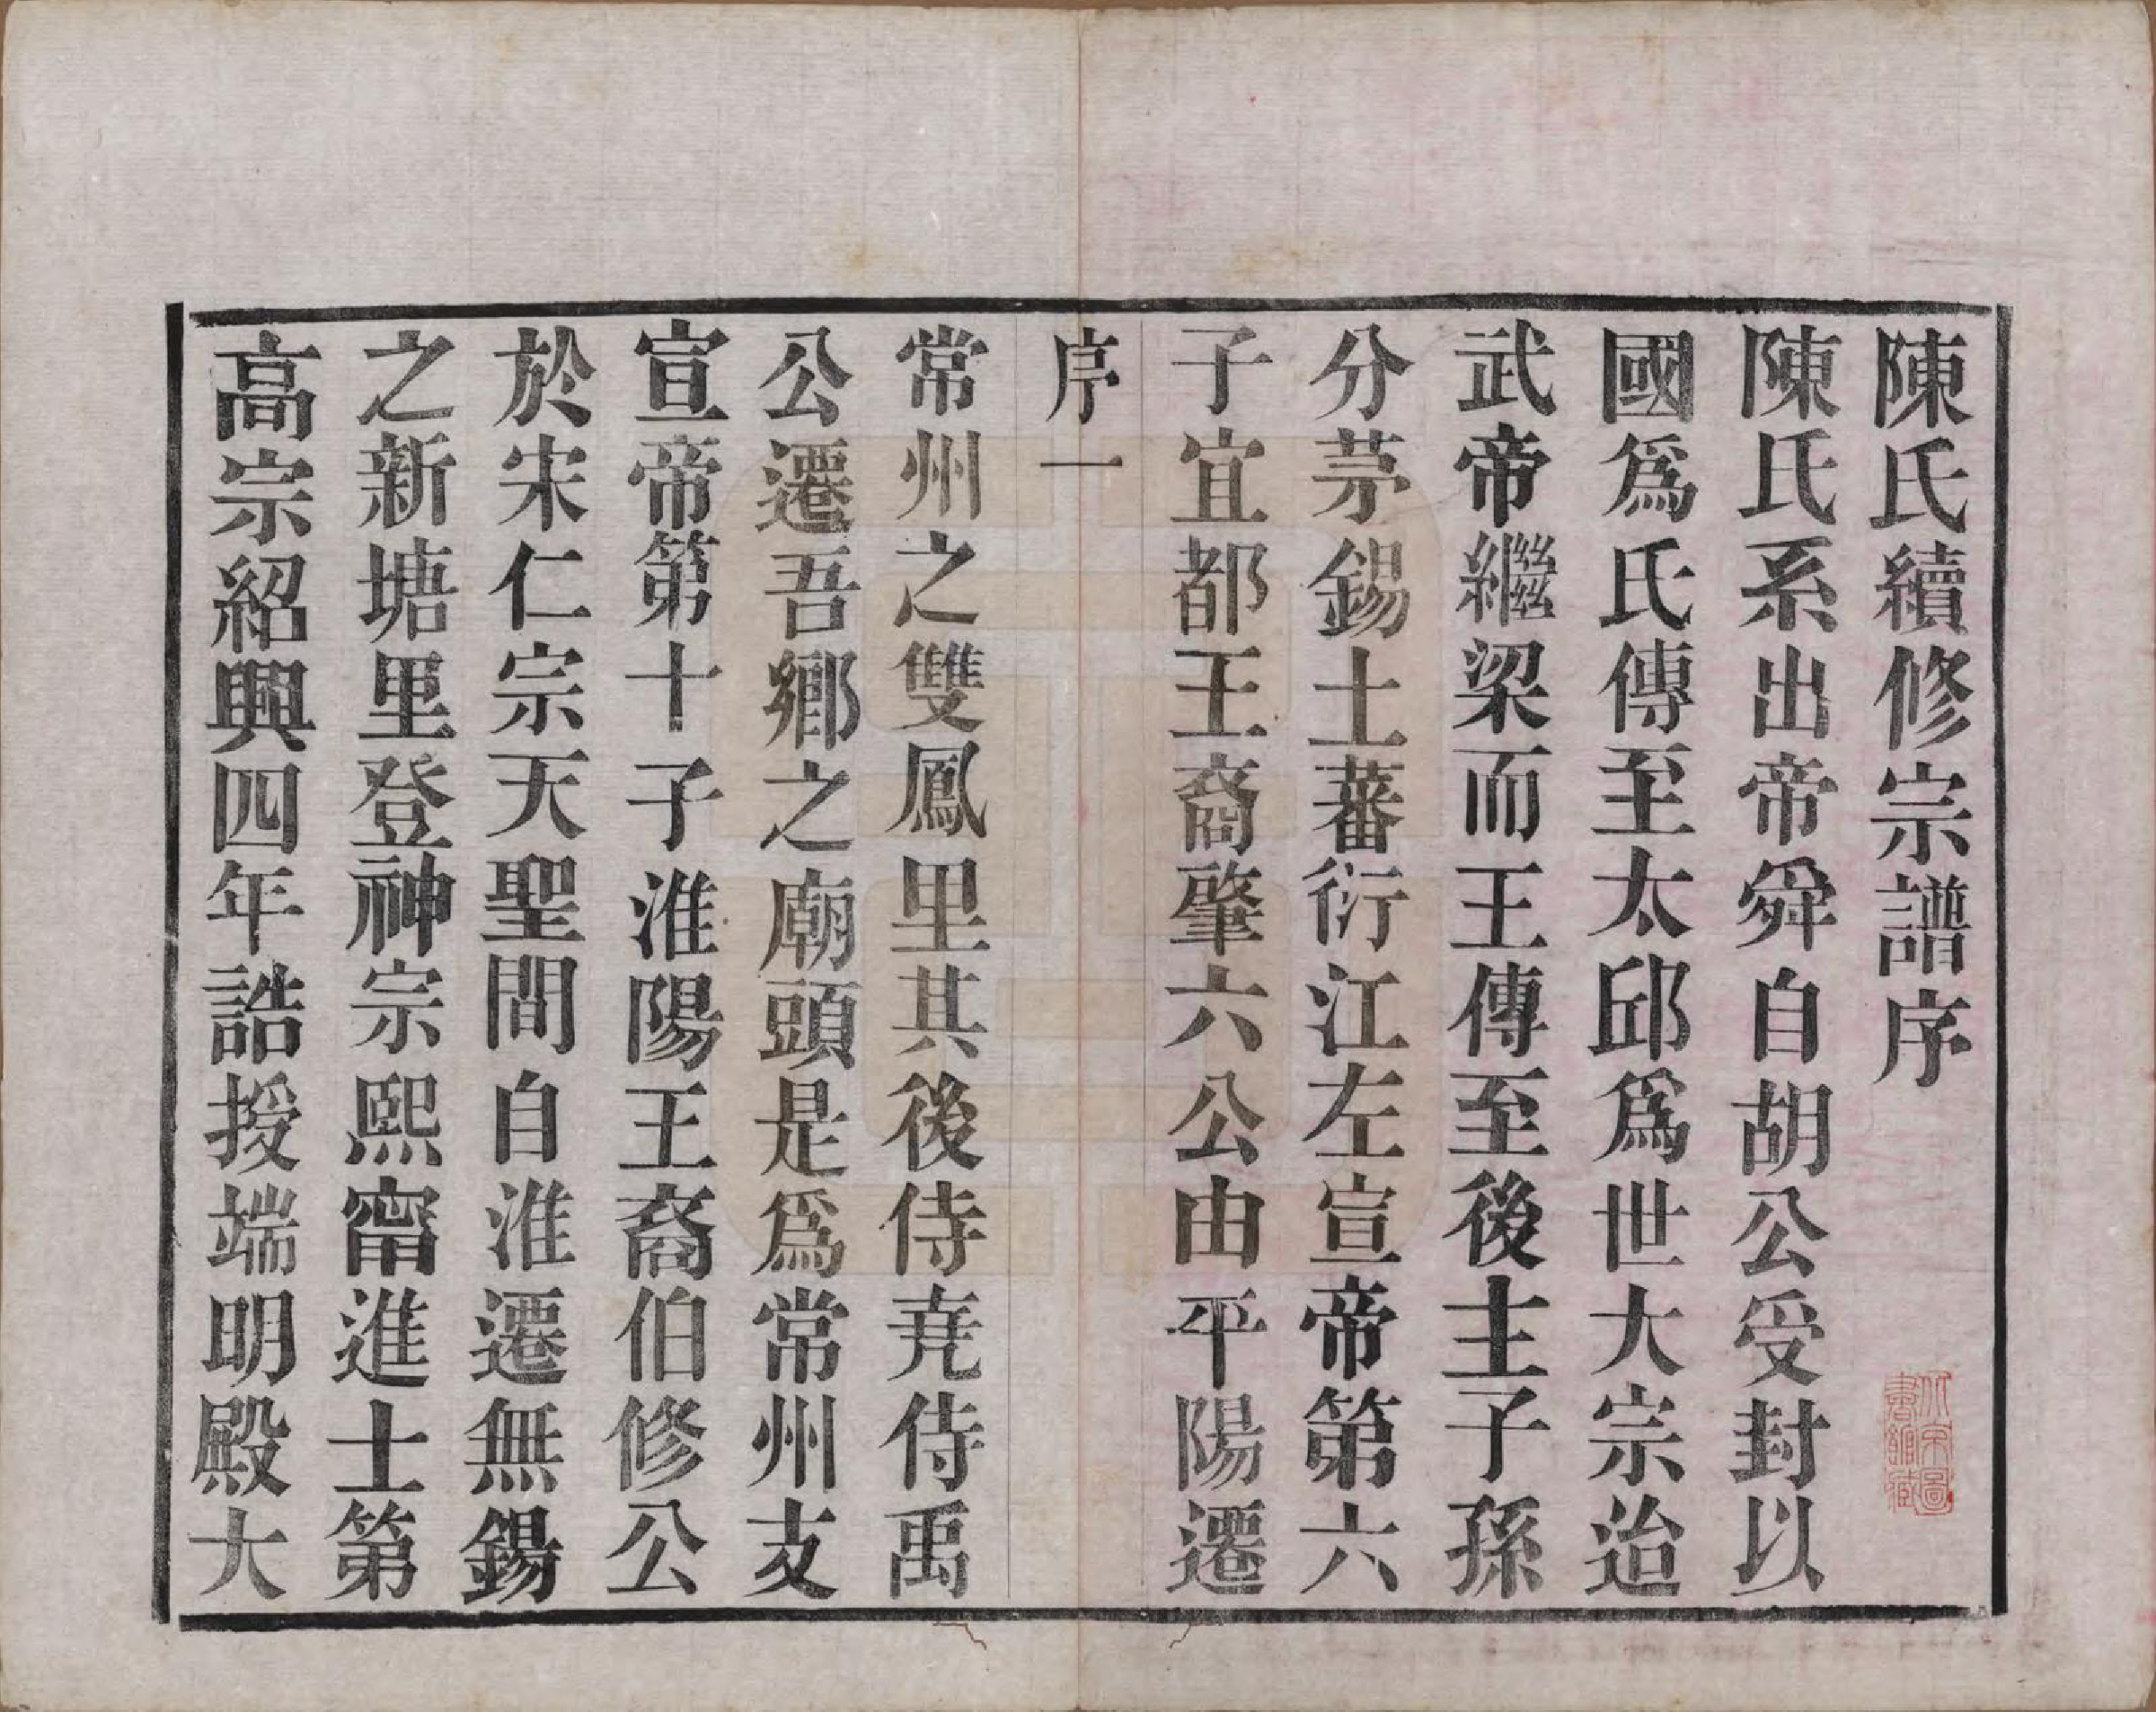 陳氏續修宗譜序
陳氏系出帝舜自胡公受封以
國爲氏傳至太邱爲世大宗迨
武帝繼梁而王傳至後主子孫
分茅錫土蕃衍江左宣帝第六
子宜都王裔肇六公由平陽遷
序一
常州之雙鳳里其後侍堯侍禹
公遷吾鄉之廟頭是爲常州支
宣帝第十子淮陽王裔伯修公
於宋仁宗天聖間自淮遷無錫
之新塘里登神宗熙甯進士第
高宗紹興四年誥授端明殿大